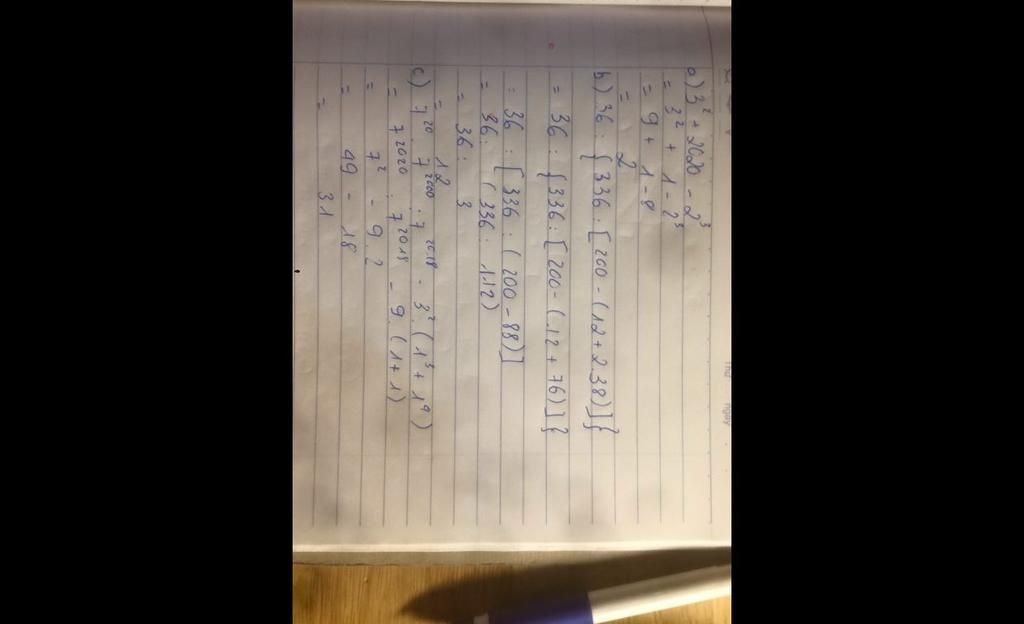 a) 3² + 2020 - 2³
= 3² + 1 - 2³
= 9 + 1 - 8
= 2
b) 36 : { 336 : [ 200 - ( 12 + 2.38 ) ] {
= 36 : { 336 : [ 200 - ( 12 + 76 ) ] {
= 36 : [ 336 : ( 200 - 88 ) ]
= 36 : ( 336 : 112 )
= 36 : 3
= 12
c) 7²⁰ . 7²⁰⁰⁰ : 7²⁰¹⁸ - 3² . ( 1⁵ + 1⁹ )
= 7²⁰²⁰ : 7²⁰¹⁸ - 9 . ( 1 + 1 )
= 7² - 9 . 2
= 49 - 18
= 31
Thứ Ngày